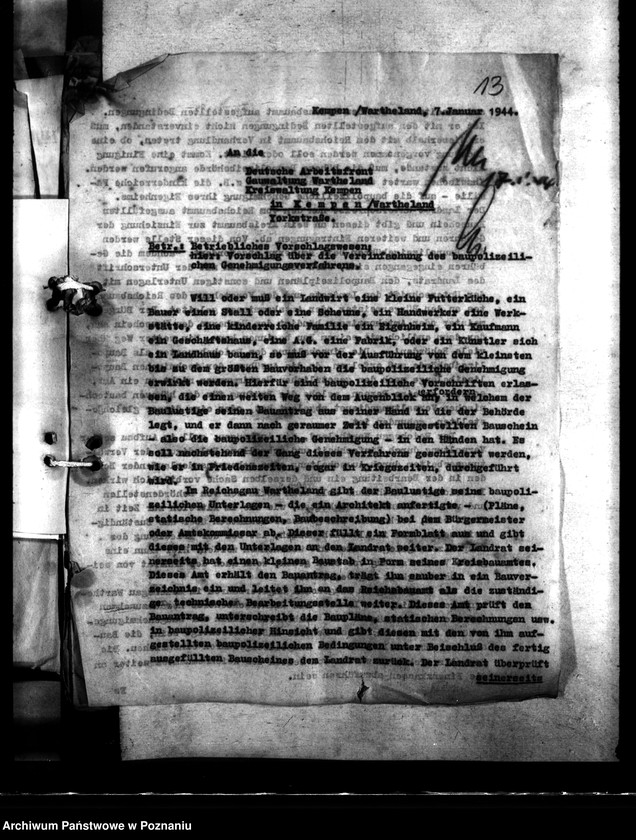 13
Kempen /Wartheland, 7.Januar 1944.
An die
Deutsche Arbeitsfront
Gauwaltung Wartheland
Kreiswaltung Kempen
in K e m p e n /Wartheland
Yorkstraße.
Betr.: Betriebliches Vorschlagswesen;
hier: Vorschlag über die Vereinfachung des baupolizeili-
chen Genehmigungsverfahrens.
Will oder muß ein Landwirt eine kleine Futterküche, ein
Bauer einen Stall oder eine Scheune, ein Handwerker eine Werk-
stätte, eine kinderreiche Familie ein Eigenheim, ein Kaufmann
ein Geschäftshaus, eine A.G. eine Fabrik, oder ein Künstler sich
ein Landhaus bauen, so muß vor der Ausführung von dem kleinsten
bis zu dem größten Bauvorhaben die baupolizeiliche Genehmigung
erwirkt werden. Hierfür sind baupolizeiliche Vorschriften erlas-
erfordern
sen, die einen weiten Weg von dem Augenblick an, in welchem der
Baulustige seinen Bauantrag aus seiner Hand in die der Behörde
legt, und er dann nach geraumer Zeit den ausgestellten Bauschein
- also die baupolizeiliche Genehmigung - in den Händen hat. Es
soll nachstehend der Gang dieses Verfahrens geschildert werden,
wie er in Friedenszeiten, sogar in Kriegszeiten, durchgeführt
wird.
Im Reichsgau Wartheland gibt der Baulustige seine baupoli-
zeilichen Unterlagen - die ein Architekt anfertigte - (Pläne,
statische Berechnungen, Baubeschreibung) bei dem Bürgermeister
oder Amtskommissar ab. Dieser füllt ein Formblatt aus und gibt
dieses mit den Unterlagen an den Landrat weiter. Der Landrat sei-
nerseits hat einen kleinen Baustab in Form seines Kreisbauamtes.
Dieses Amt erhält den Bauantrag, trägt ihn sauber in ein Bauver-
zeichnis ein und leitet ihn an das Reichsbauamt als die zuständi-
ge technische Bearbeitungsstelle weiter. Dieses Amt prüft den
Bauantrag, unterschreibt die Baupläne, statischen Berechnungen usw.
in baupolizeilicher Hinsicht und gibt diesen mit den von ihm auf-
gestellten baupolizeilichen Bedingungen unter Beischluß des fertig
ausgefüllten Bauscheines dem Landrat zurück. Der Landrat überprüft
seinerseits
Archiwum Państwowe w Poznaniu